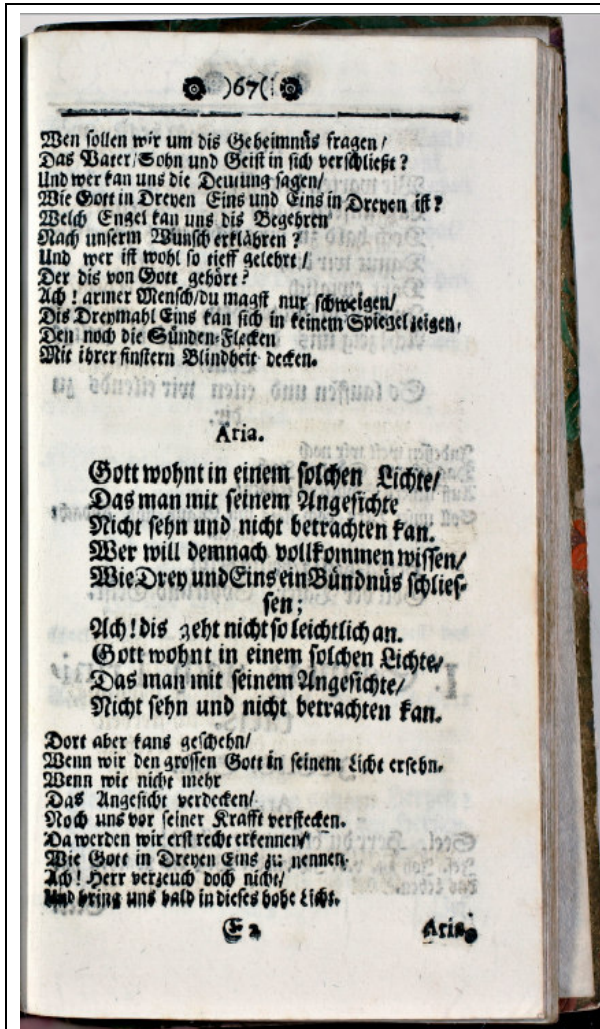 )67(
Wen sollen wir um dis Geheimnüs fragen/
Das Vater/Sohn und Geist in sich verschließt?
Und wer kan uns die Deutung sagen/
Wie Gott in Dreyen Eins und Eins in Dreyen ist?
Welch Engel kan uns dis Begehren
Nach unserm Wunsch erklähren?
Und wer ist wohl so tieff gelehrt/
Der dis von Gott gehört?
Ach! armer Mensch/du magst nur schweigen/
Dis Dreymahl Eins kan sich in keinem Spiegel zeigen,
Den noch die Sünden-Flecken
Mit ihrer finstern Blindheit decken.
Aria.
Gott wohnt in einem solchen Lichte/
Das man mit seinem Angesichte
Nicht sehn und nicht betrachten kan.
Wer will demnach vollkommen wissen/
Wie Drey und Eins ein Bündnüs schlies-
sen;
Ach! dis geht nicht so leichtlich an.
Gott wohnt in einem solchen Lichte/
Das man mit seinem Angesichte/
Nicht sehn und nicht betrachten kan.
Dort aber kans geschehn/
Wenn wir den grossen Gott in seinem Licht ersehn.
Wenn wir nicht mehr
Das Angesicht verdecken/
Noch uns vor seiner Krafft verstecken.
Da werden wir erst recht erkennen/
Wie Gott in Dreyen Eins zu nennen.
Ach! Herr verzeuch doch nicht/
Und bring uns bald in dieses hohe Licht.
E 2 Aria.